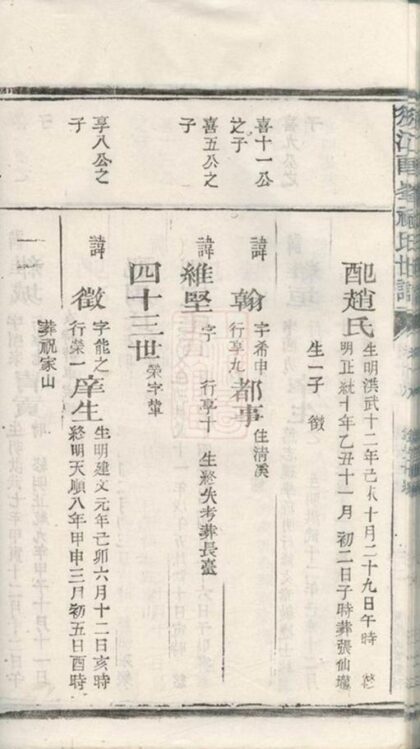 配趙氏
生明洪武十二年己未十月二十九日午時 終
明正統十年乙丑十一月 初二日子時葬張仙壠
生一子 徵
喜十一公
之子
諱 翰 字希申 都事 住清溪
行享九
喜五公之
子
諱 維堅 字 行享十 生終失考葬長臺
四十三世 榮字輩
享八公之
子
諱 徵 字能之 庠生 生明建文元年己卯六月十二日亥時
行榮一 終明天順八年甲申三月初五日酉時
葬祝家山